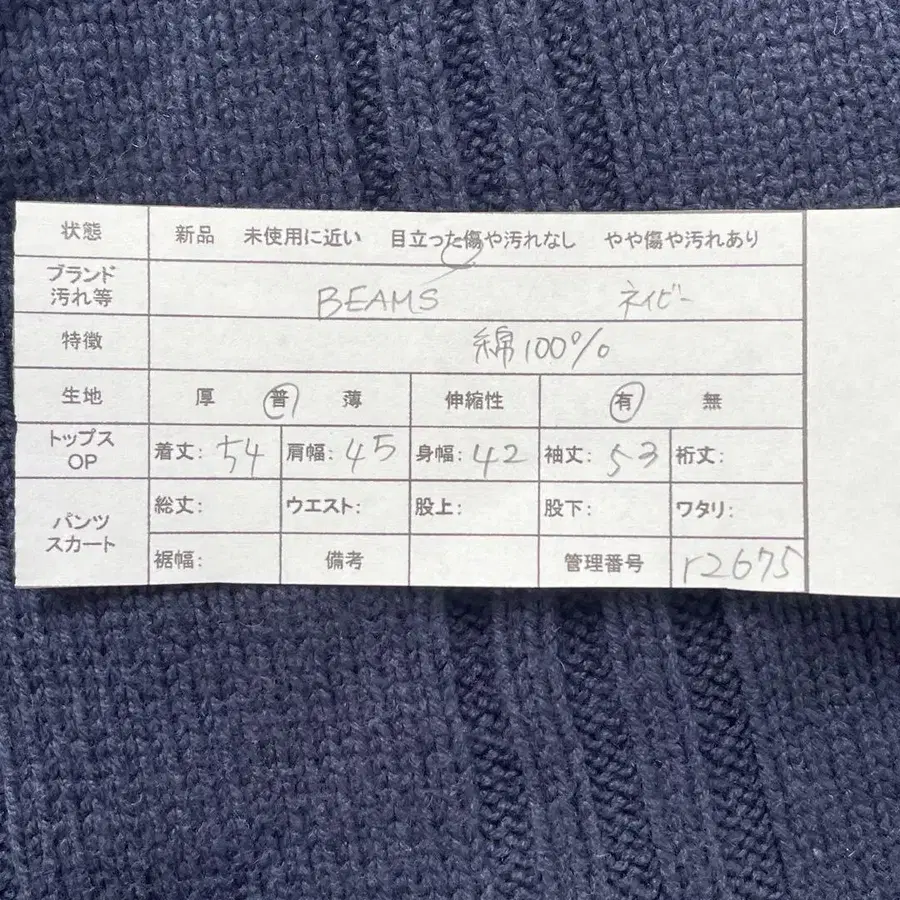 状態 新品 未使用に近い 目立った傷や汚れなし やや傷や汚れあり
ブランド
汚れ等 BEAMS ネイビー
特徴 綿100%
生地 厚 普 薄 伸縮性 有 無
トップス
OP 着丈: 54 肩幅: 45 身幅: 42 袖丈: 53 裄丈:
パンツ
スカート 総丈: ウエスト: 股上: 股下: ワタリ:
裾幅: 備考 管理番号 r2675